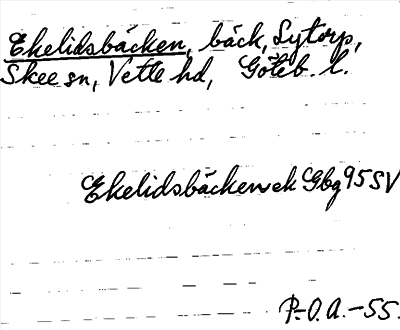 Ekelidsbäcken, bäck, Lytorp,
Skee sn, Vette hd, Göteb. l.
Ekelidsbäcken ek Gbg 95 SV
P.-O.A.-55.